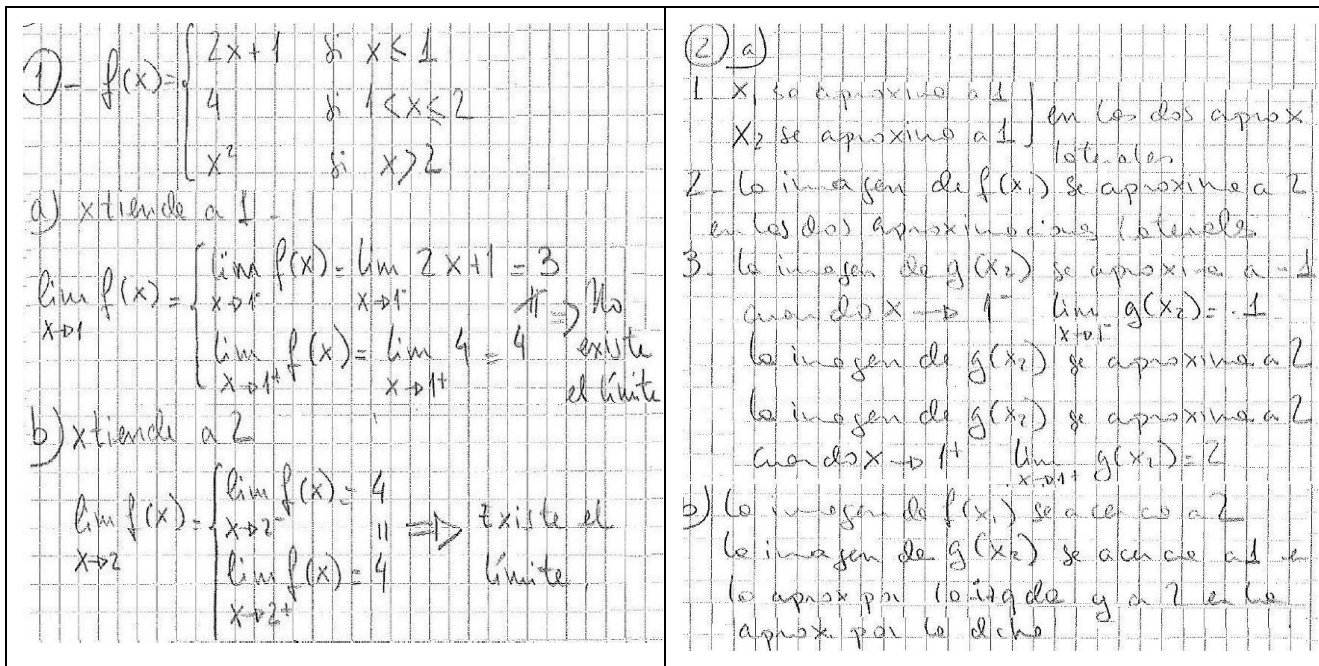 1- f(x)= { 2x+1 si x≤1
4 si 1<x≤2
x² si x>2
a) x tiende a 1.
lim x→1 f(x) = { lim x→1⁻ f(x) = lim x→1⁻ 2x+1 = 3
≠ ⇒ No existe el límite
lim x→1⁺ f(x) = lim x→1⁺ 4 = 4
b) x tiende a 2
lim x→2 f(x) = { lim x→2⁻ f(x) = 4
|| ⇒ Existe el límite,
lim x→2⁺ f(x) = 4
2) a)
1 x₁ se aproxima a 1
x₂ se aproxima a 1 } en las dos aprox laterales
2- la imagen de f(x₁) se aproxima a 2
en las dos aproximaciones laterales.
3- la imagen de g(x₂) se aproxima a -1
cuando x → 1⁻ lim x→1⁻ g(x₂) = .1
la imagen de g(x₂) se aproxima a 2
la imagen de g(x₂) se aproxima a 2
cuando x → 1⁺ lim x→1⁺ g(x₂) = 2
b) la imagen de f(x₁) se acerca a 2
la imagen de g(x₂) se acerca a 1 en
la aprox por la izqda y a 2 en la
aprox. por la dcha